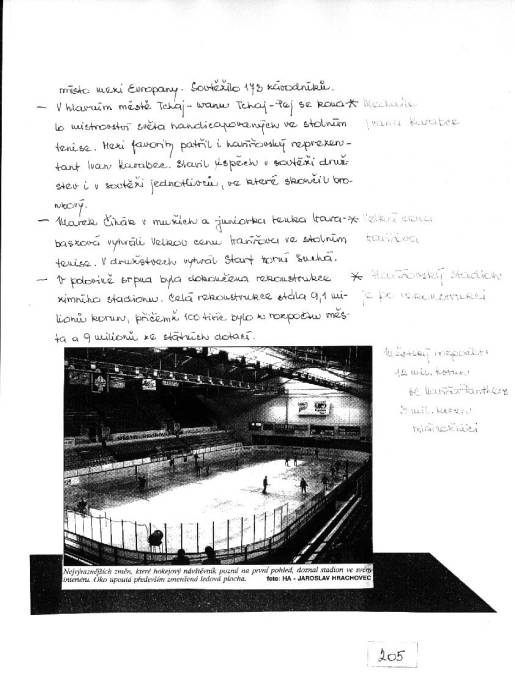 místo mezi Evropany. Soutěžilo 173 závodníků.
– V hlavním městě Tchaj-wanu Tchaj-Pej se kona-*
lo mistrovství světa handicapovaných ve stolním
tenise. Mezi favority patřil i havířovský reprezen-
tant Ivan Karabec. Slavil úspěch v soutěži druž-
stev i v soutěži jednotlivců, ve které skončil bro-
nzový.
– Marek Čihák v mužích a juniorka Lenka Hara-*
baszová vyhráli Velkou cenu Havířova ve stolním
tenise. V družstvech vyhrál Start Horní Suchá.
– V polovině srpna byla dokončena rekonstrukce *
zimního stadionu. Celá rekonstrukce stála 9,1 mi-
lionů korun, přičemž 100 tisíc bylo z rozpočtu měs-
ta a 9 milionů ze státních dotací.
Ivana Karabce
Velká cena
Havířova
Havířovský stadion
je po rekonstrukci
Městský rozpočet
mil. korun
mil. korun
Nejvýraznějších změn, které hokejový návštěvník pozná na první pohled, doznal stadion ve svém
interiéru. Oko upoutá především zmenšená ledová plocha. foto: HA - JAROSLAV HRACHOVEC
205